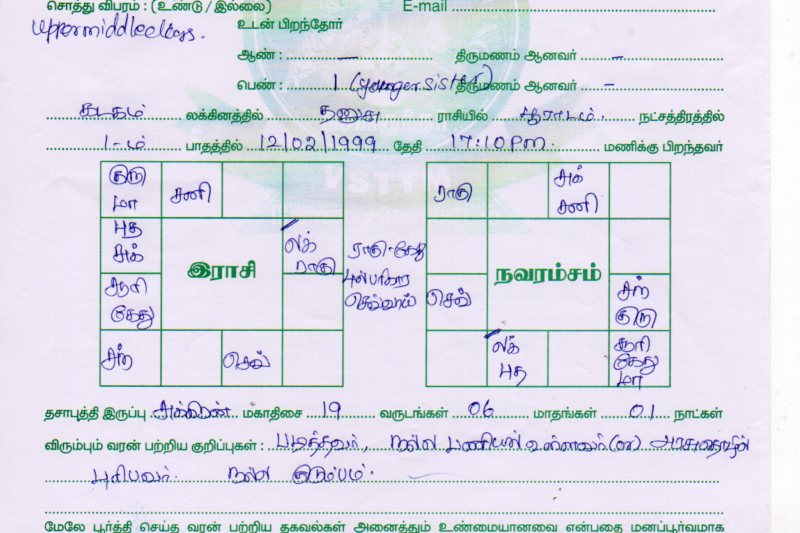 சொத்து விபரம் : (உண்டு / இல்லை) E-mail
uppermiddleclass.
உடன் பிறந்தோர்
ஆண் : — திருமணம் ஆனவர் : —
பெண் : 1 (younger sister) திருமணம் ஆனவர் : —
கடகம் லக்கினத்தில் தனுசு ராசியில் பூராடம் நட்சத்திரத்தில்
1-ம் பாதத்தில் 12/02/1999 தேதி 17:10 PM மணிக்கு பிறந்தவர்
குரு மா சனி
புத சுக்
லக் ராகு
சூரி கேது
இராசி
சந் செவ்
ராகு-கேது
செவ்வாய்
ராகு சுக் சனி
நவரம்சம்
செவ் சந் குரு
லக் புத சூரி கேது மா
தசாபுத்தி இருப்பு சுக்கிரன் மகாதிசை 19 வருடங்கள் 06 மாதங்கள் 01 நாட்கள்
விரும்பும் வரன் பற்றிய குறிப்புகள் : படித்தவர், நல்ல பணியில் உள்ளவர் (or)
புரிபவர். நல்ல குடும்பம்.
மேலே பூர்த்தி செய்த வரன் பற்றிய தகவல்கள் அனைத்தும் உண்மையானவை என்பதை மனப்பூர்வமாக